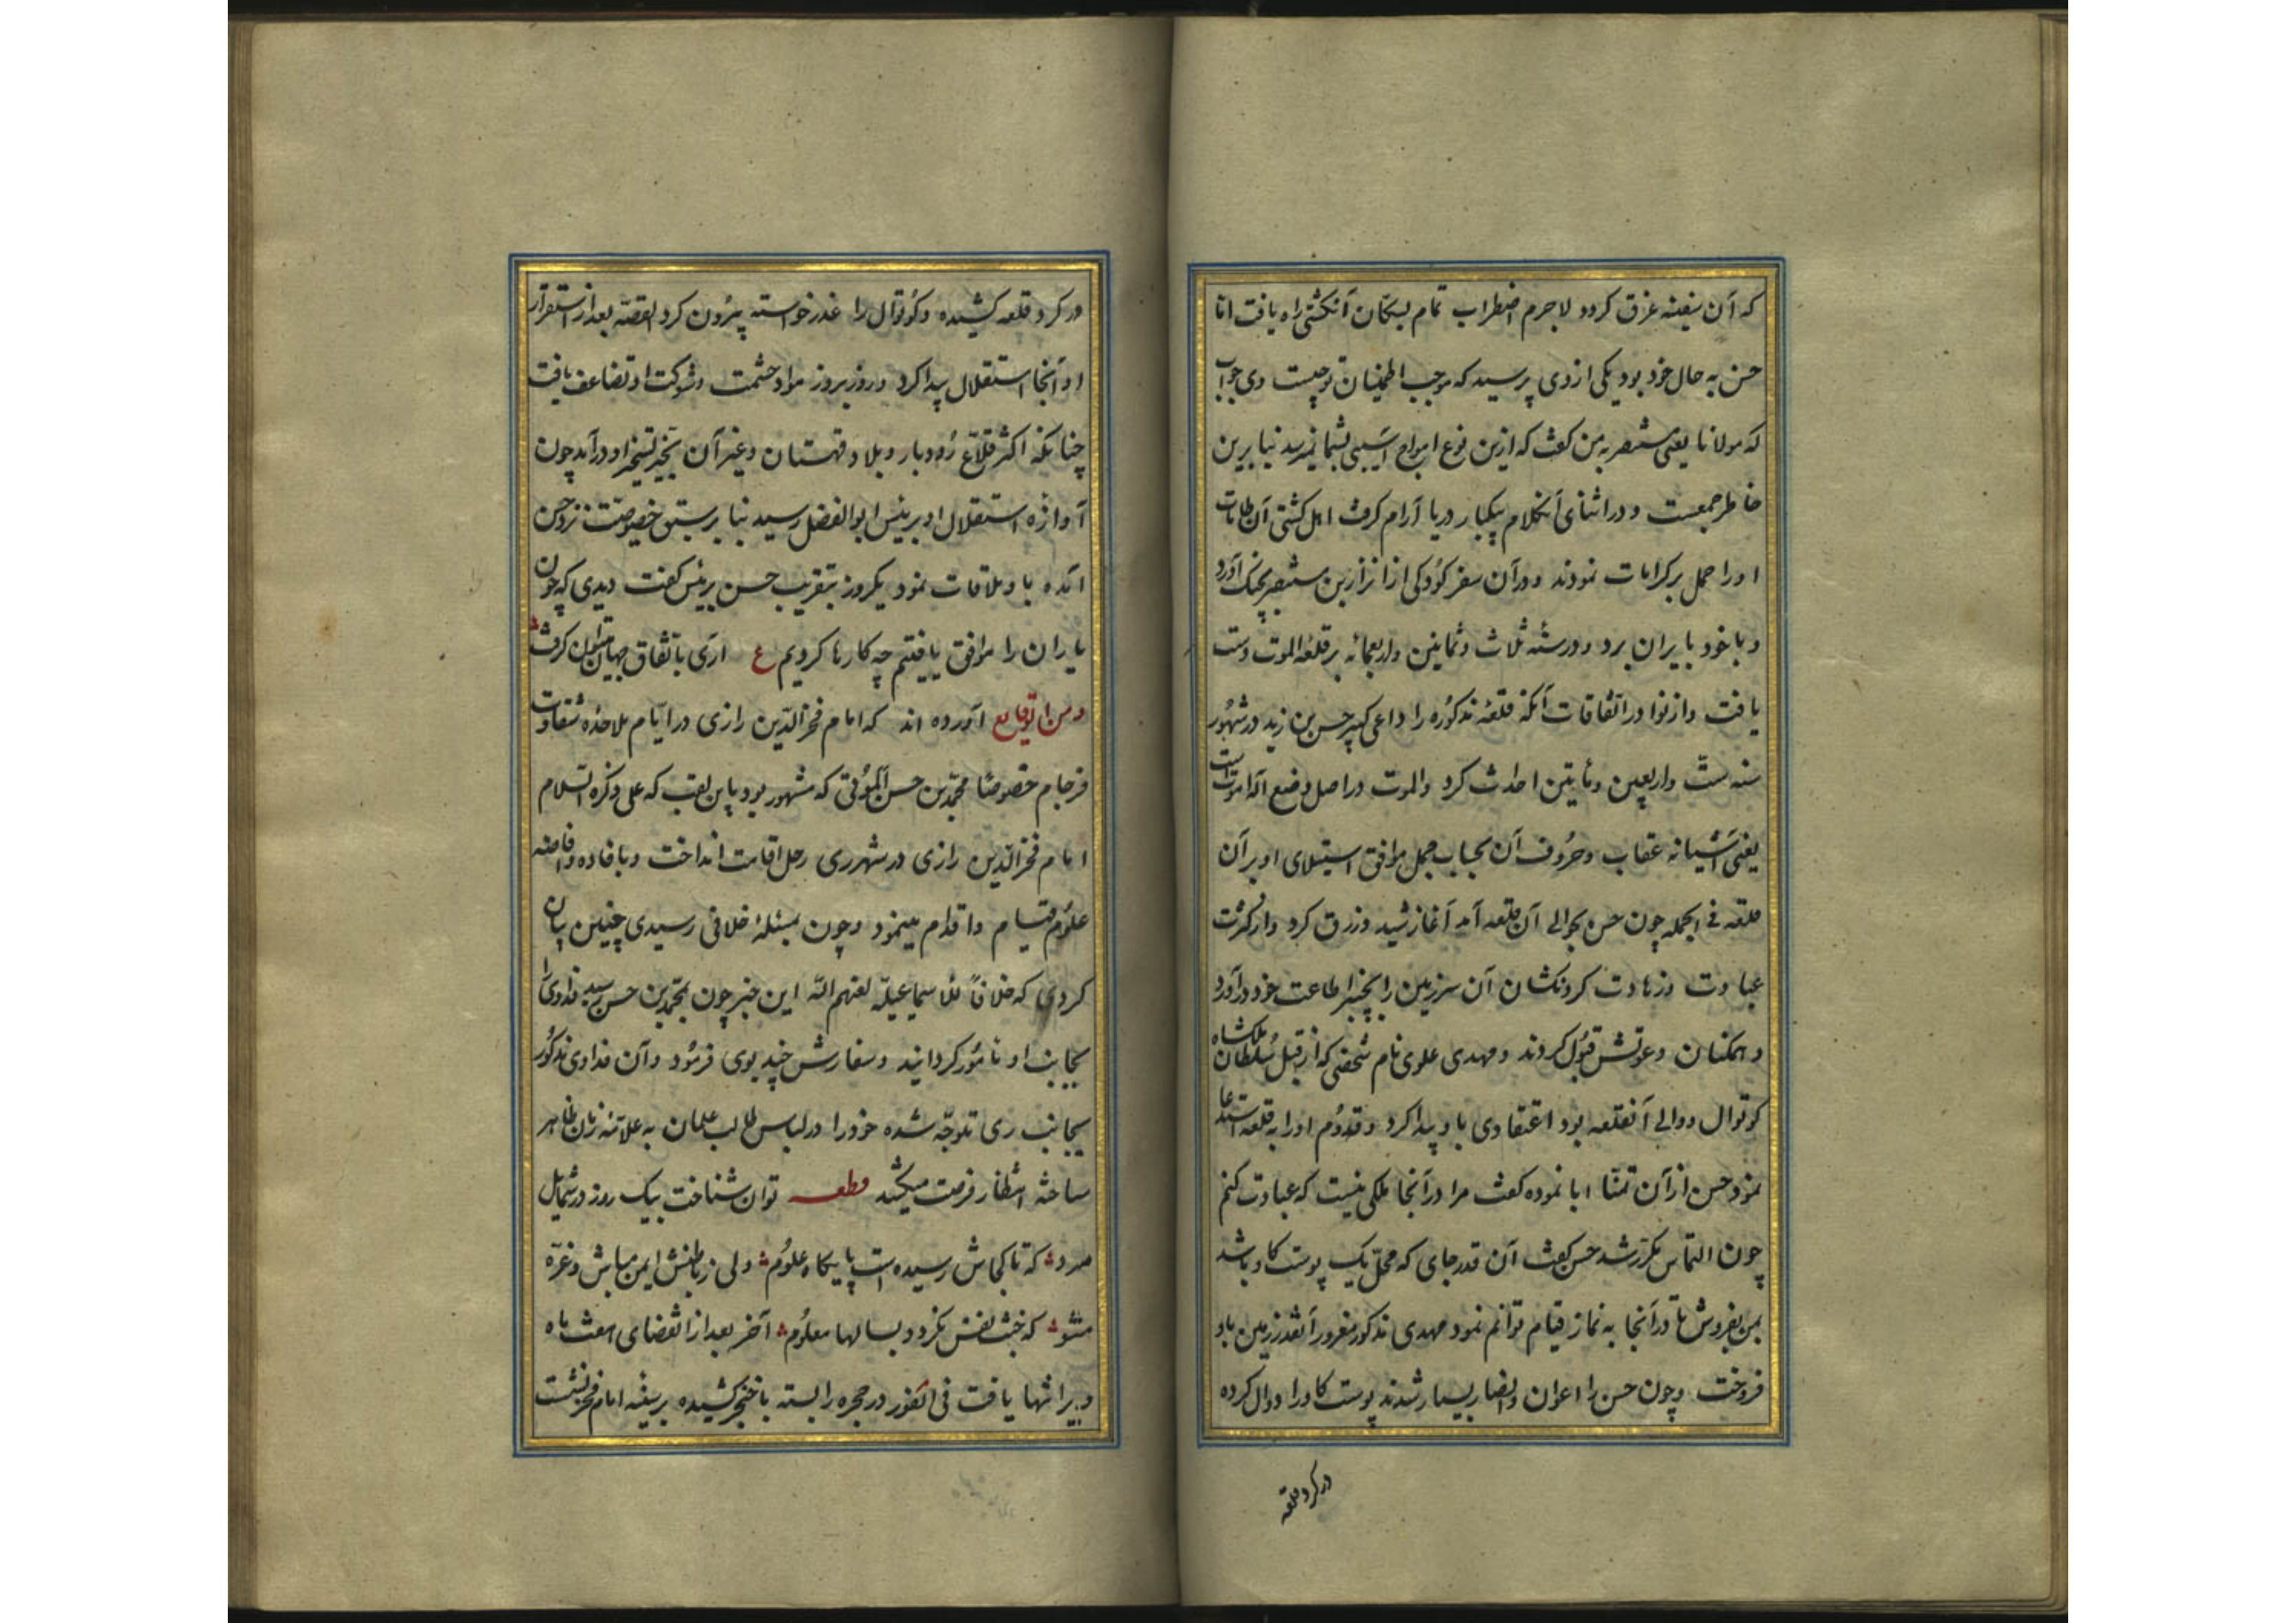 که آن سفینه غرق کردد لاجرم اضطراب تمام بسکان آنکشتی راه یافت اما
حسن به حال خود بود یکی از وی پرسید که موجب اطمینان تو چیست وی جواب
که مولانا یعنی مستنصر به من کفت که ازین نوع امواج آسیبی بشما نمیرسد بنا برین
خاطر جمعست و در اثنای آنکلام بیکبار دریا آرام کرفت اهل کشتی آن طامات
او را حمل بر کرامات نمودند و در آن سفر کودکی از نزار بن مستنصر بچنک آورد
و با خود بایران برد و در سنه ثلاث و ثمانین و اربعمائه بر قلعه الموت دست
یافت و از نوادر اتفاقات آنکه قلعه مذکوره را داعی کبیر حسن بن زید در شهور
سنه ست و اربعین و مایتین احداث کرد والموت در اصل وضع اله اموتست
یعنی آشیانه عقاب و حروف آن بحساب جمل موافق استیلای او بر آن
قلعه فی الجمله چون حسن بحوالی آن قلعه آمد آغاز شید و زرق کرد و از کثرت
عبادت و زهادت کردنکشان آن سرزمین را بچنبر اطاعت خود در آورد
و همکنان دعوتش قبول کردند و مهدی علوی نام شخصی که از قبل سلطان ملکشاه
کوتوال و والی آنقلعه بود اعتقادی باو پیدا کرد و قدوم او را به قلعه استدعا
نمود حسن از آن تمنا ابا نموده کفت مرا در آنجا ملکی نیست که عبادت کنم
چون التماس مکرر شد حسن کفت آن قدر جای که محل یک پوست کاو باشد
بمن بفروش تا در آنجا به نماز قیام توانم نمود مهدی مذکور مغرور آنقدر زمین باو
فروخت و چون حسن را اعوان و انصار بسیار شدند پوست کاو را دوال کرده
در کرد قلعه
در کرد قلعه کشیده و کوتوال را عذر خواسته بیرون کرد القصه بعد از استقرار
او آنجا استقلال پیدا کرد و روز بروز مواد حشمت و شوکت او تضاعف یافت
چنانکه اکثر قلاع رودبار و بلاد قهستان و غیر آن بحیز تسخیر او در آمد چون
آوازه استقلال او برئیس ابوالفضل رسید بنا بر سبق خصوصیت نزد حسن
آمده با او ملاقات نمود یکروز بتقریب حسن برئیس کفت دیدی که چون
یاران را موافق یافتیم چه کارها کردیم ع آری باتفاق جهان میتوان کرفت
و من الوقایع آورده اند که امام فخر الدین رازی در ایام ملاحده شقاوت
فرجام خصوصا محمد بن حسن الموتی که مشهور بود باین لقب که علی ذکره السلام
امام فخر الدین رازی در شهر ری رحل اقامت انداخت و بافاده و افاضه
علوم قیام و اقدام مینمود و چون بمسئله خلافی رسیدی چنین بیان
کردی که خلافاً للاسماعیلیه لعنهم الله این خبر چون بمحمد بن حسن رسید فداوی را
بجانب او مامور کردانید و سفارش چند بوی فرمود و آن فداوی مذکور
بجانب ری متوجه شده خود را در لباس طالب علمان به علامه زمان ظاهر
ساخته انتظار فرصت میکشید قطعه توان شناخت بیک روز در شمایل
مرد که تا کجاش رسیده است پایکاه علوم ولی ز باطنش ایمن مباش و غره
مشو که خبث نفس نکردد بسالها معلوم آخر بعد از انقضای هفت ماه
ویرا تنها یافت فی الفور در حجره را بسته با خنجر کشیده بر سینه امام فخر نشست